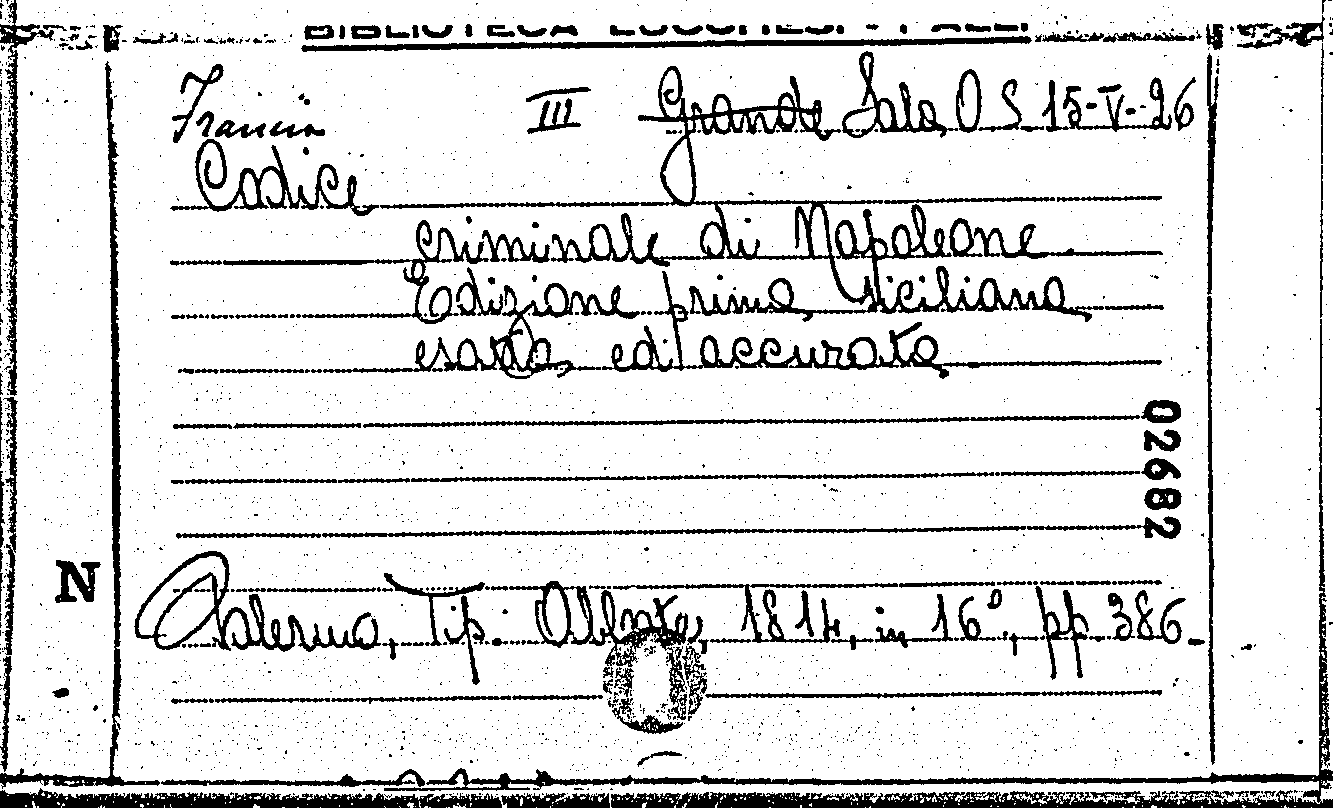 BIBLIOTECA LUCCHESI - PALLI
Francia III Grande Sala O S 15-V-26
Codice
criminale di Napoleone.
Edizione prima Siciliana
esatta ed accurata.
02682
N
Palermo, Tip. Abbate, 1814, in 16º, pp. 386.